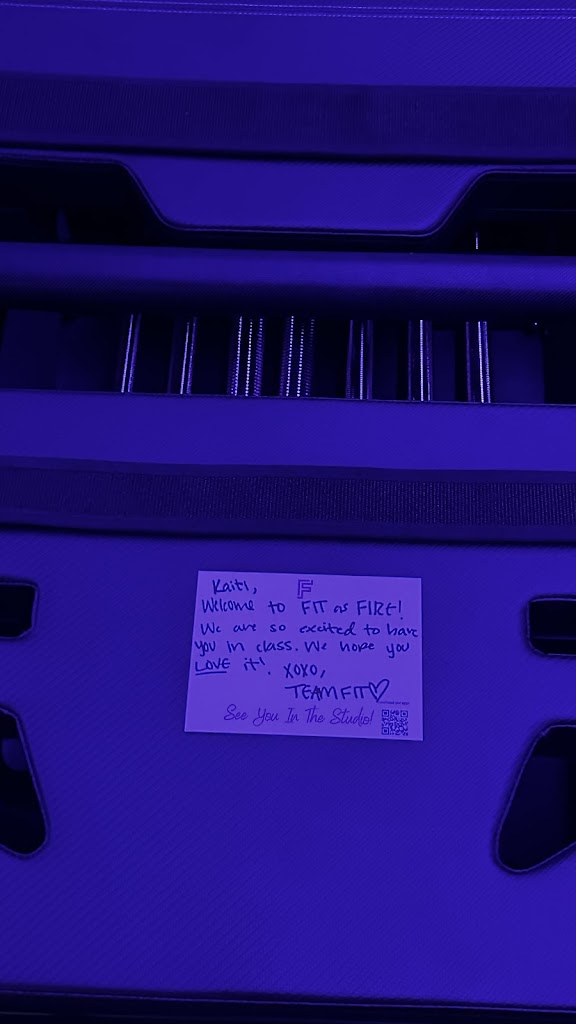 Kaiti,
F
Welcome to FIT as FIRE!
We are so excited to have
you in class. We hope you
LOVE it! XOXO,
TEAM FIT♡
See You In The Studio!